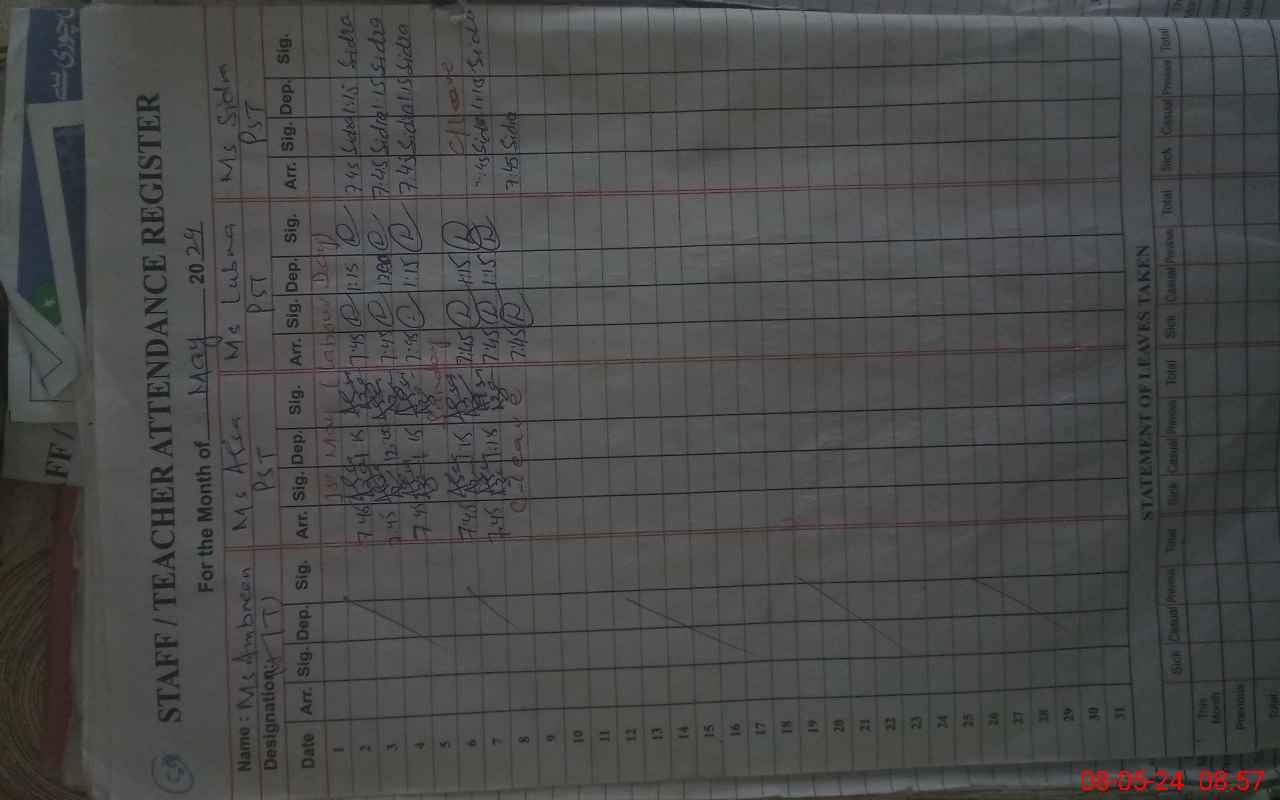 59
STAFF / TEACHER ATTENDANCE REGISTER
For the Month of May 2024
Name : Ms Ambreen Ms Asia Ms Lubna Ms Sidra
Designation: PST PST PST
Date Arr. Sig. Dep. Sig. Arr. Sig. Dep. Sig. Arr. Sig. Dep. Sig. Arr. Sig. Dep. Sig.
1 1st May (Labour Day)
2 7:45 1:15 7:45 1:15 7:45 Sidra 1:15 Sidra
3 7:45 7:45 7:45 Sidra 1:15 Sidra
4 7:45 1:15 7:45 1:15 7:45 Sidra 1:15 Sidra
5 Sunday
6 7:45 1:15 7:45 1:15 C/leave
7 7:45 1:15 7:45 1:15 7:45 Sidra 1:15 Sidra
8 C-leave 7:45 7:45 Sidra
9
10
11
12
13
14
15
16
17
18
19
20
21
22
23
24
25
26
27
28
29
30
31
STATEMENT OF LEAVES TAKEN
Sick Casual Previous Total Sick Casual Previous Total Sick Casual Previous Total Sick Casual Previous Total
This Month
Previous
Total
08-05-24 08:57